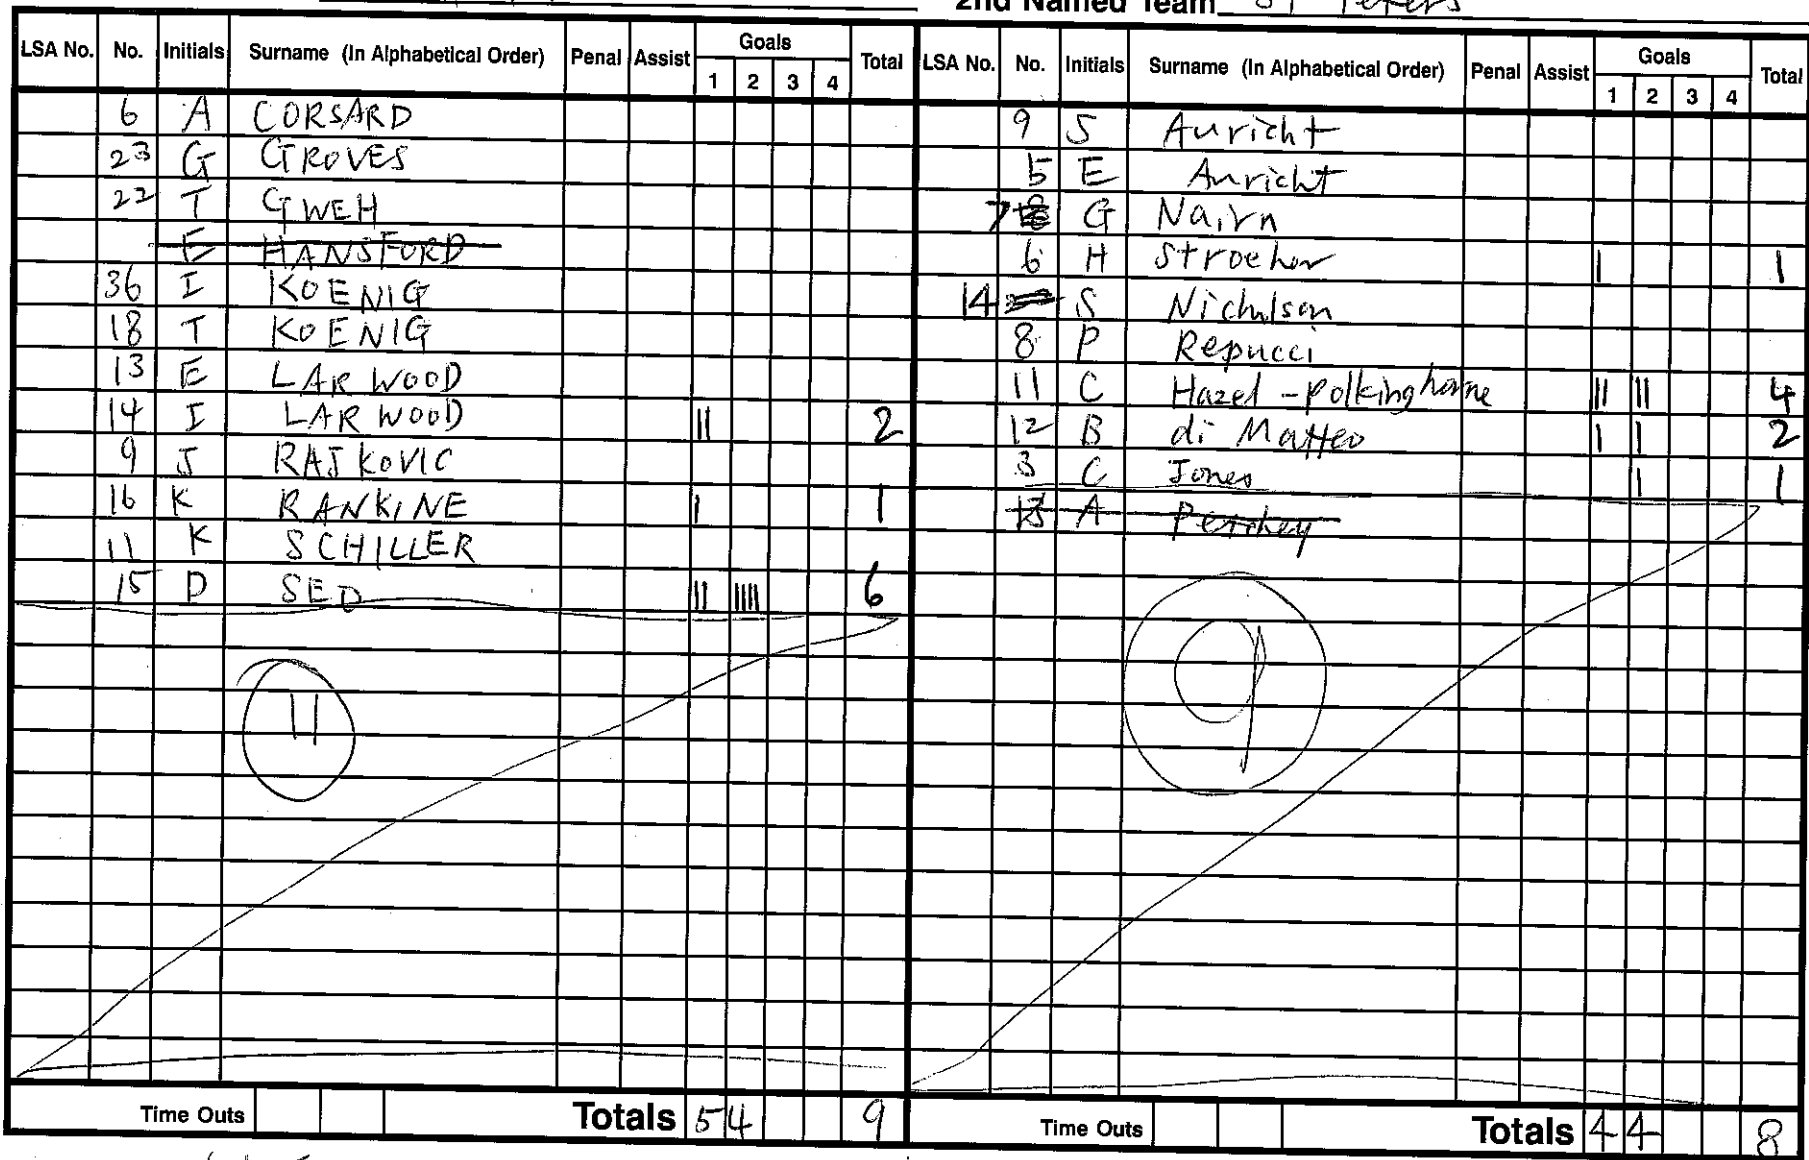 2nd Named Team St Peters
LSA No. No. Initials Surname (In Alphabetical Order) Penal Assist Goals 1 2 3 4 Total
6 A CORSARD
23 G GROVES
22 T GWEH
E HANSFORD
36 I KOENIG
18 T KOENIG
13 E LARWOOD
14 I LARWOOD || 2
9 J RAJKOVIC
16 K RANKINE | 1
11 K SCHILLER
15 D SED || |||| 6
11
Time Outs Totals 5 4 9
LSA No. No. Initials Surname (In Alphabetical Order) Penal Assist Goals 1 2 3 4 Total
9 S Auricht
5 E Auricht
7 G Nairn
6 H Stroeher | 1
14 S Nicholson
8 P Repucci
11 C Hazel-polkinghorne || || 4
12 B di Matteo | | 2
3 C Jones | 1
A
9
Time Outs Totals 4 4 8